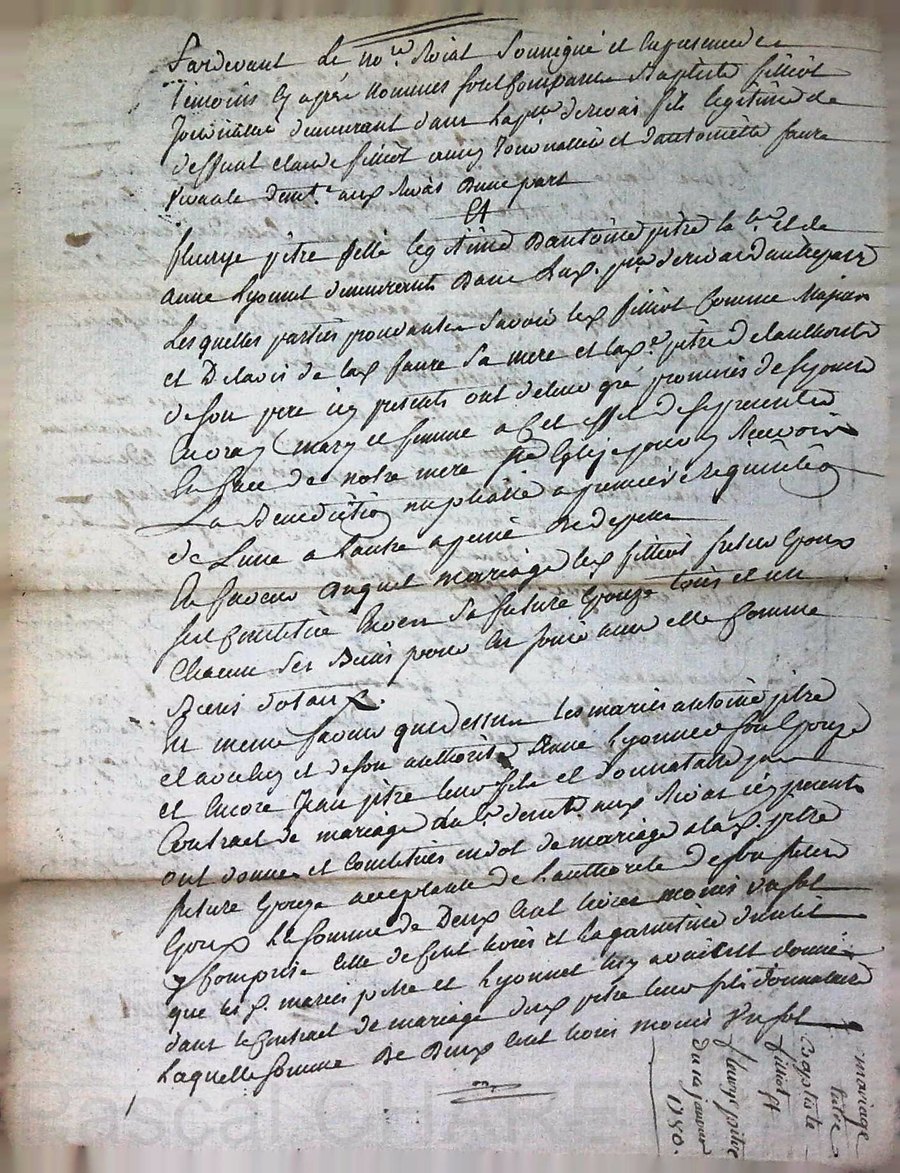 Pardevant Le no.re Roial Soussigné et En presence des
témoins Cy après nommés furent Comparus Baptiste filliot
Journallier demeurant dans La p.sse fils legitime de
deffunt claude filliot vivant Journallier et d'antoinette faure
d'une part
Et
fleurye pitre fille legitime D'antoine pitre et de
anne Lyonnet demeurants Dans La d'autre part
Lesquelles parties procedantes Savoir le d. filliot Comme Majeur
et De lavis de la d. faure Sa mere et la d.e pitre De lauthorité
de son pere icy presents ont de leur gré promis de se joindre
En vray mary et femme a Cet effet de Se presenter
En face de notre mere S.te Eglise pour y Recevoir
La Benediction nuptialle a premiere Requisition
de L'une a L'autre a peine de depens
En faveur Duquel mariage le d. filliot futur Epoux
Envers Sa future Epouze tous et un
Chacun Ses Biens pour En jouir avec elle Comme
Biens dotaux.
En meme faveur que dessus Les mariés antoine pitre
et de son authorité Anne Lyonnet Son Epouze
et Encore Jean pitre leur fils et Donnataire par
Contract de mariage aux Roias icy presents
ont donné et Constitués en dot de mariage a la d. pitre
future Epouze acceptante de L'authorité De son futur
Epoux La Somme de Deux Cent livres moins un sol
y Comprise Celle de Cent livres et La garniture d'un lit
que les d. mariés pitre et Lyonnet luy avaient donné
dans le Contract de mariage dud. pitre leur fils donnataire
Laquelle Somme De Deux Cent livres moins Un sol
mariage
entre
Baptiste
filliot et
fleurye pitre
du 19 janvier
1780.
Pascal CHARE